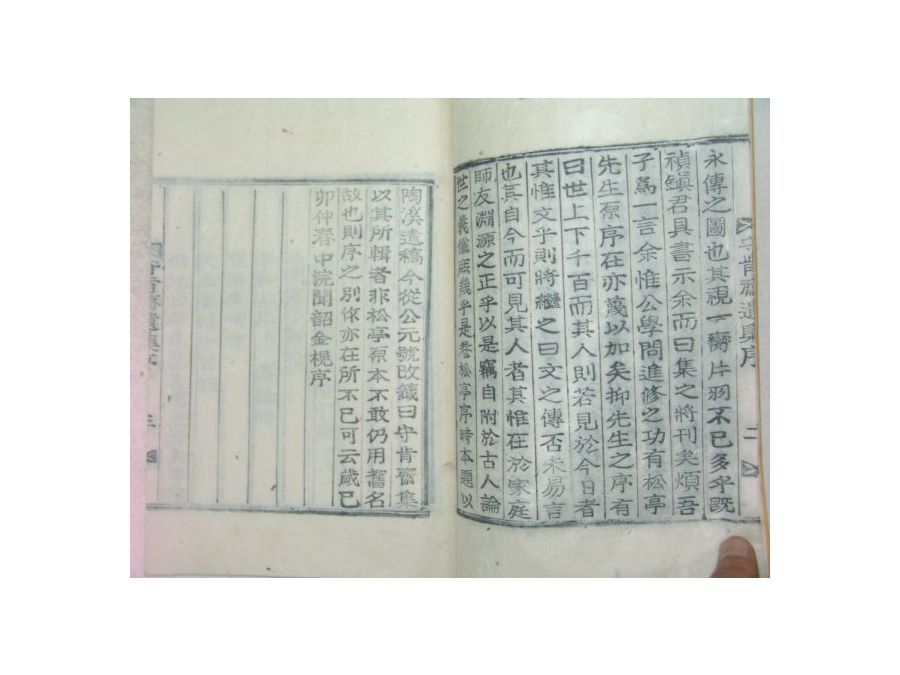 永傳之圖也其視一臠片羽不已多乎旣
禎鎭君具書示余而曰集之將刊矣煩吾
子爲一言余惟公學問進修之功有松亭
先生原序在亦蔑以加矣抑先生之序有
曰世上下千百而其人則若見於今日者
其惟文乎則將繼之曰文之傳否未易言
也其自今而可見其人者其惟在於家庭
師友淵源之正乎以是竊自附於古人論
世之義儻庶幾乎是卷松亭序時本題以
陶溪遺稿今從公元號改籤曰守肯齋集
以其所輯者非松亭原本不敢仍用舊名
故也則序之別作亦在所不已可云歲己
卯仲春中浣聞韶金榥序
守肯齋遺集序
二
三